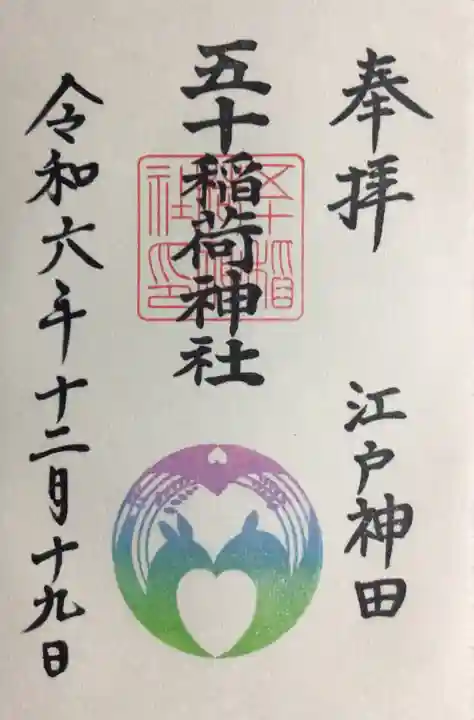 奉拝
江戸神田
五十稲荷神社
五十稲荷神社印
令和六年十二月十九日